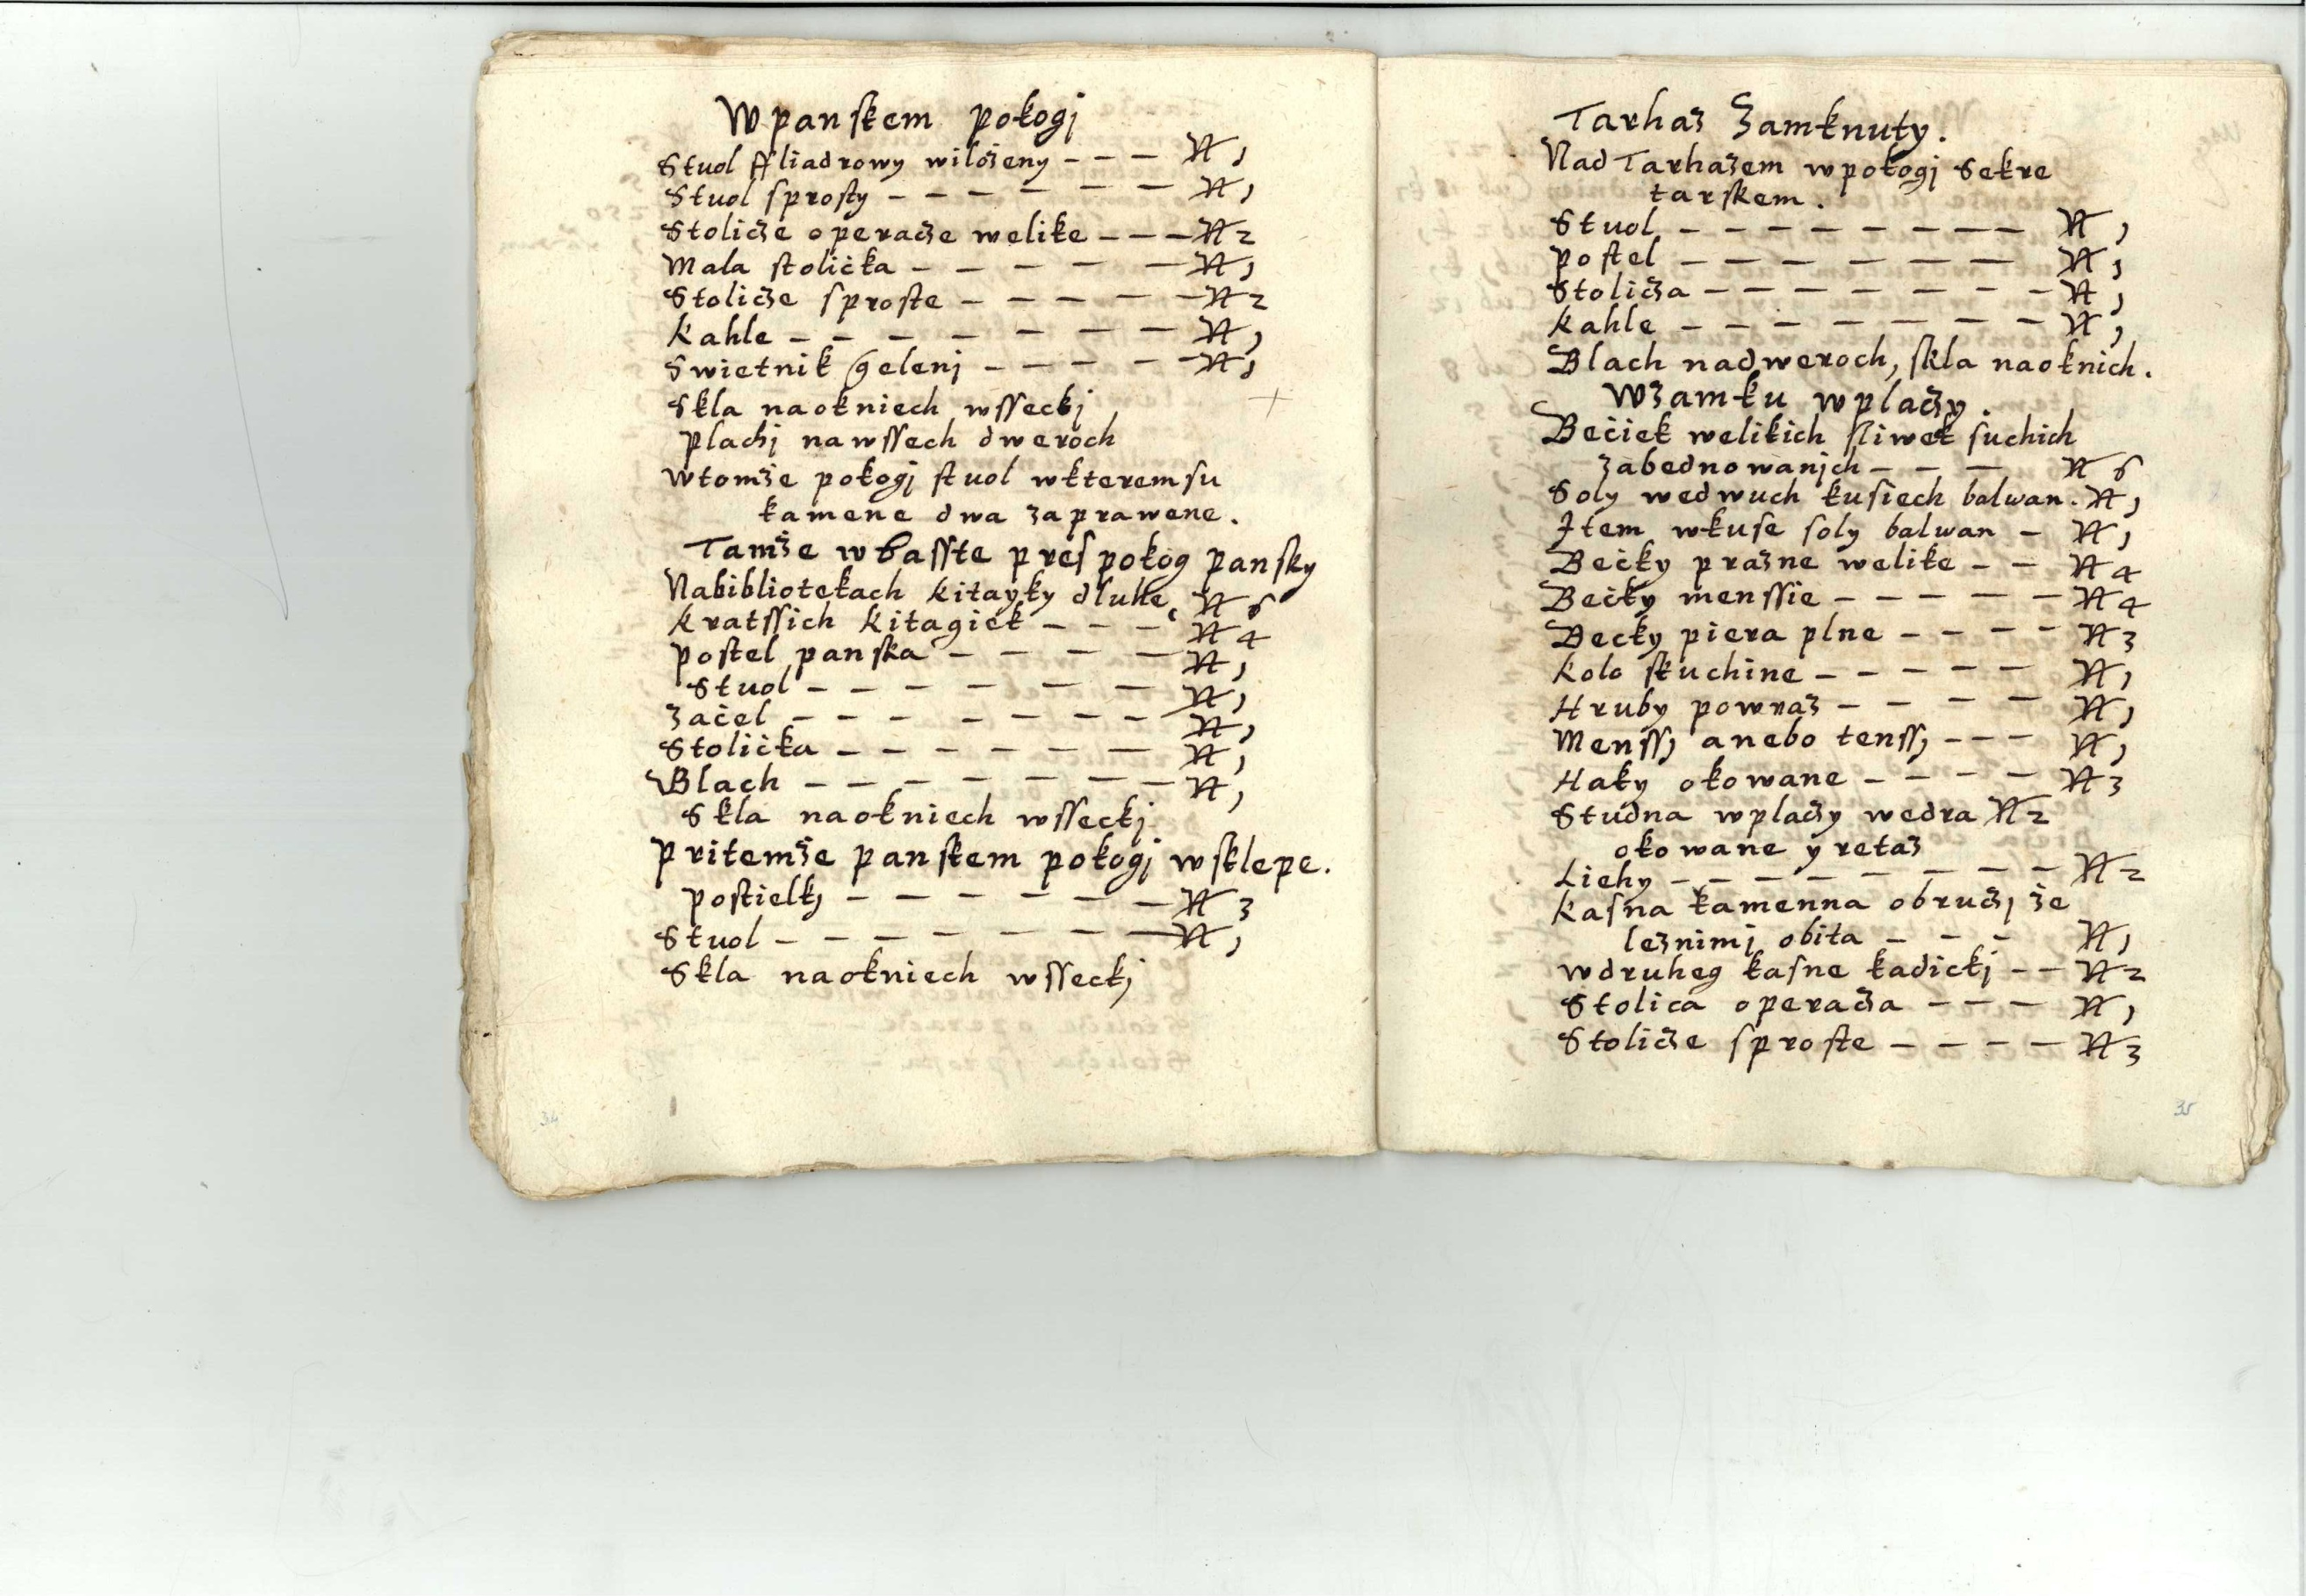 W panskem pokogj
Stuol ffliadrowy wiloženy - - - N 1
Stuol sprosty - - - - - - N 1
Stoličze operačze welike - - - N 2
Mala stolička - - - - - N 1
Stoličze sproste - - - - - N 2
Kahle - - - - - - - N 1
Swietnik gelenj - - - - - N 1
Skla naokniech wsseckj
plachj nawssech dweroch
wtomže pokogj stuol wkteremsu
kamene dwa zaprawene.
Tamže w basste pres pokog pansky
Nabibliotekach kitayky dluhe N 6
Kratssich kitagiek - - - N 4
postel panska - - - - - N 1
Stuol - - - - - - - N 1
začel - - - - - - - N 1
Stolička - - - - - - N 1
Blach - - - - - - - N 1
Skla naokniech wsseckj
Pritemže panskem pokogj wsklepe.
postielkj - - - - - - N 3
Stuol - - - - - - - N 1
Skla naokniech wsseckj
34
Tarhaz Zamknuty.
Nad Tarhazem wpokogj Sekre
tarskem.
Stuol - - - - - - - - - N 1
postel - - - - - - - N 1
Stoličza - - - - - - - N 1
Kahle - - - - - - - N 1
Blach nadweroch, skla naoknich.
Wzamku wplačzy.
Bečiek welikich sliwek suchich
zabednowanjch - - - N 6
Soly wedwuch kusiech balwan. N 1
Item wkuse soly balwan - N 1
Bečky prazne welike - - N 4
Bečky menssie - - - - - N 4
Becky piera plne - - - - N 3
Kolo skuchine - - - - - N 1
Hruby powraz - - - - N 1
Menssj anebo tenssj - - - N 1
Haky okowane - - - - N 3
Studna wplačzy wedra N 2
okowane y retaz
Liehy - - - - - - - - N 2
Kasna kamenna obručzj že
leznimj obita - - - N 1
wdruheg kasne kadickj - - N 2
Stolica operačza - - - N 1
Stoličze sproste - - - - N 3
35